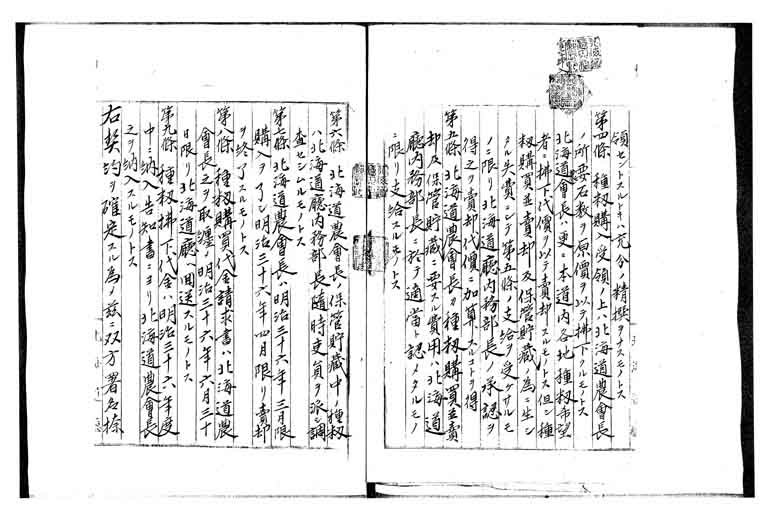 領セントスルトキハ充分ノ精撰ヲナスモノトス
第四條 種籾購入受領ノ上ハ北海道農會長
ノ所要石数ヲ原價ヲ以テ拂下クルモノトス
北海道農會長ハ更ニ本道内各地種籾希望
者ニ拂下代價ヲ以テ賣却スルモノトス但シ種
籾購買並賣却及保管貯藏ノ為ニ生シ
タル失費ニシテ第五條ノ支給ヲ受ケサルモ
ノニ限リ北海道廳内務部長ノ承認ヲ
得之ヲ賣却代價ニ加算スルコトヲ得
第五條 北海道農會長カ種籾購買並賣
却及保管貯藏ニ要スル費用ハ北海道
廳内務部長ニ於テ適當ト認メタルモノ
ニ限リ支給スルモノトス
第六條 北海道農會長ノ保管貯藏中ノ種籾
ハ北海道廳内務部長ハ隨時吏員ヲ派シ調
査セシムルモノトス
第七條 北海道農會長ハ明治三十六年三月限
購入ヲ了シ明治三十六年四月限リ賣却
ヲ終了スルモノトス
第八條 種籾購買代金請求書ハ北海道農
會長之ヲ取纏メ明治三十六年六月三十
日限リ北海道廳ヘ回送スルモノトス
第九條 種籾拂下代金ハ明治三十六年度
中ニ納入告知書ニヨリ北海道農會長
之ヲ納入スルモノトス
右契約ヲ確定スル為メ茲ニ双方署名捺